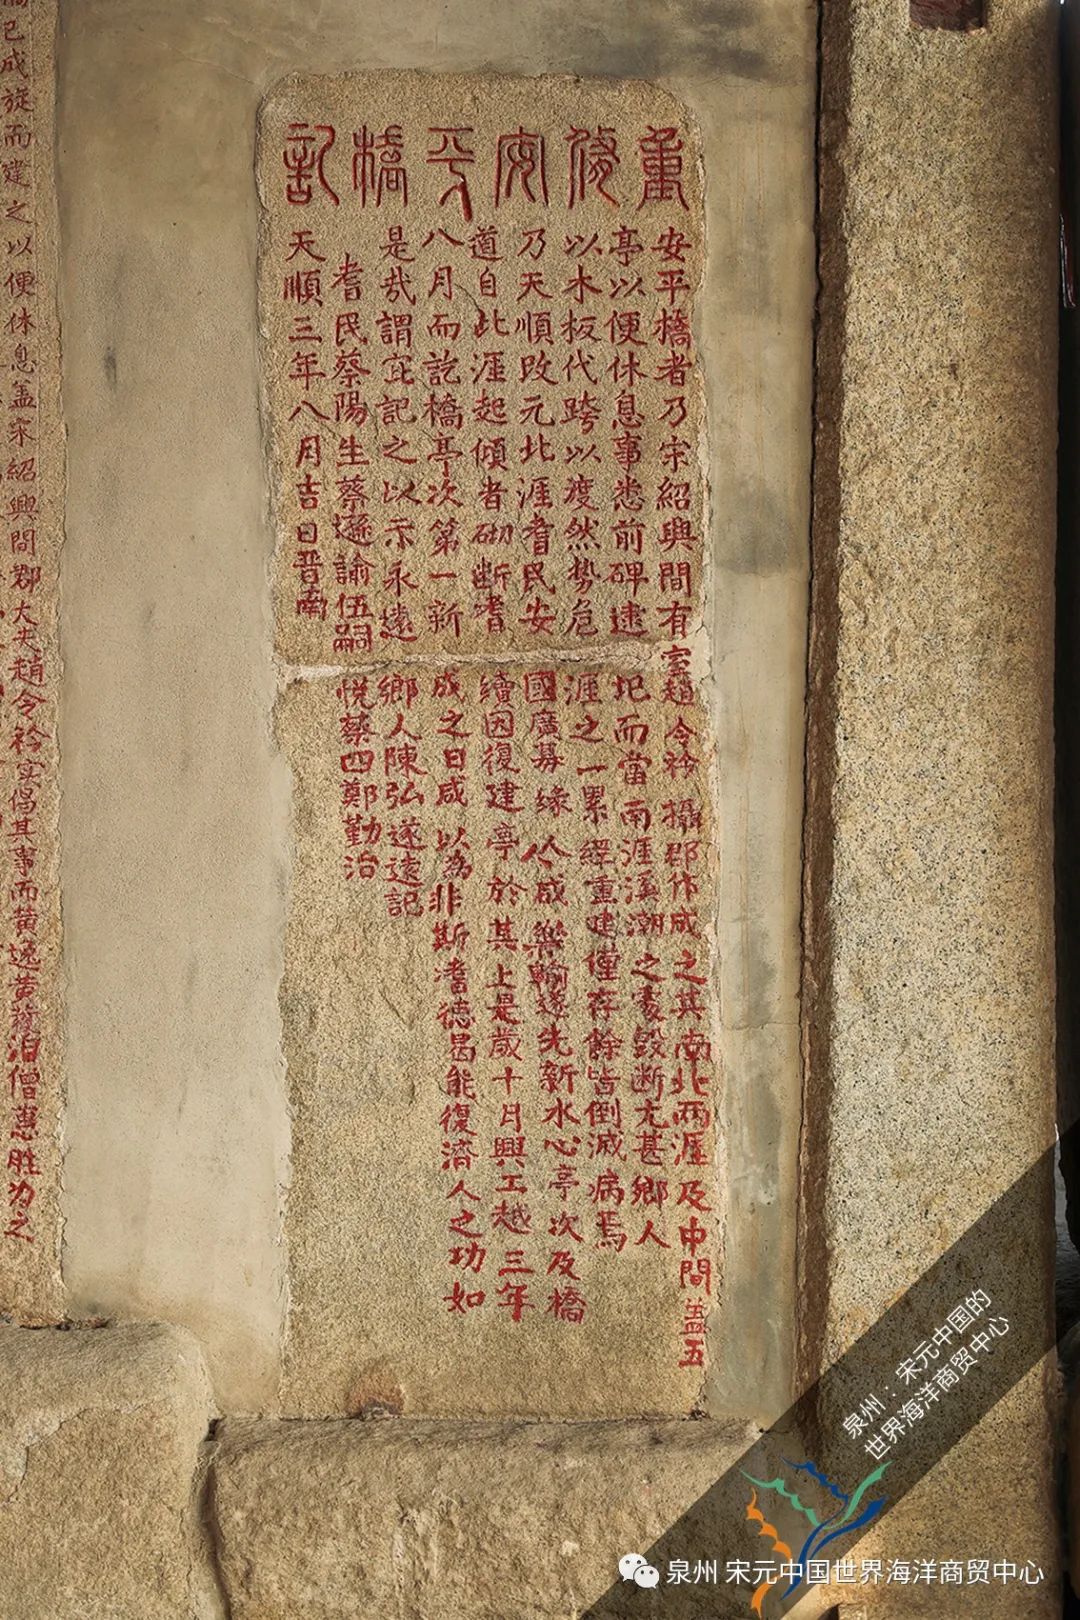 重修安平橋記
安平橋者乃宋紹興間有室趙令衿攝郡作成之其南北兩涯及中間盖五
亭以便休息事悉前碑逮圯而當南涯溪潮之衝毀断尤甚鄉人
以木板代跨以渡然勢危涯之一累經重建僅存餘皆倒滅病焉
乃天順改元北涯耆民安國廣募緣人咸樂輸遂先新水心亭次及橋
道自此涯起傾者砌断者續因復建亭於其上是歲十日興工越三年
八月而訖橋亭次第一新成之日咸以為非斯耆德曷能復濟人之功如
是哉謂宜記之以示永遠鄉人陳弘遂遠記
耆民蔡陽生蔡遜諭伍嗣悦蔡四鄭勤治
天順三年八月吉日晋南
已成旋而建之以便休息盖宋紹興間郡大夫趙令衿实倡其事而黄逸黄護洎僧惠胜为之
泉州：宋元中国的
世界海洋商贸中心
泉州 宋元中国世界海洋商贸中心